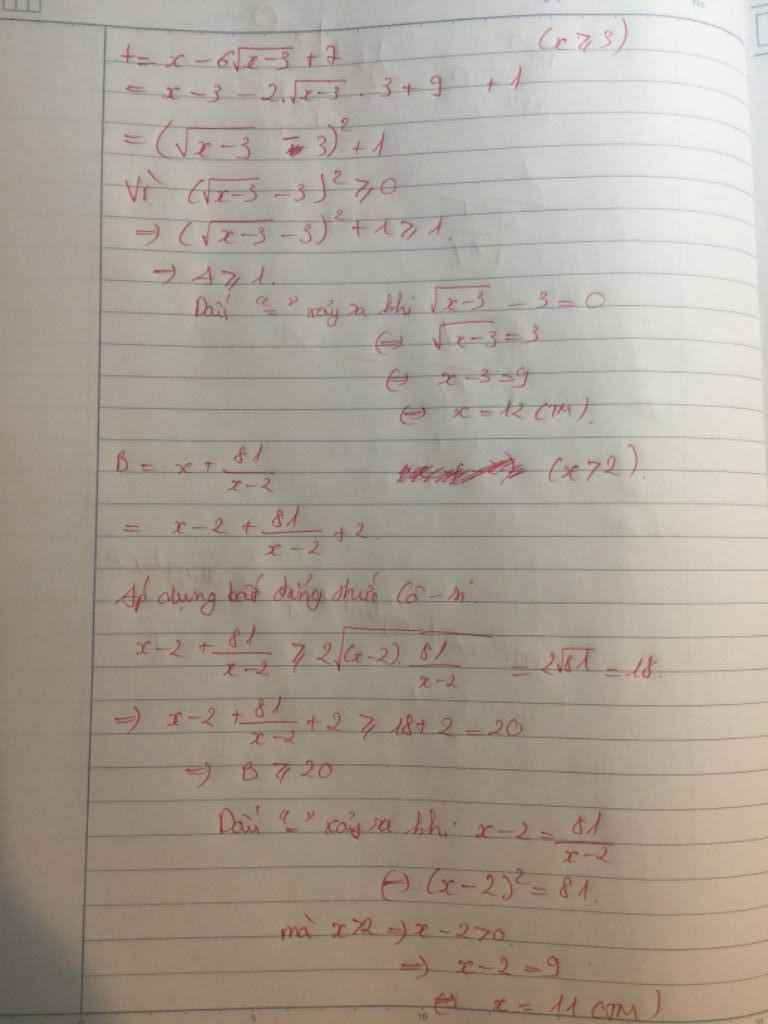 A = x - 6√(x-3) + 7 (x ≥ 3)
= x - 3 - 2.√(x-3) . 3 + 9 + 1
= (√(x-3) - 3)² + 1
Vì (√(x-3) - 3)² ≥ 0
⇒ (√(x-3) - 3)² + 1 ≥ 1.
⇒ A ≥ 1.
Dấu "=" xảy ra khi √(x-3) - 3 = 0
⇔ √(x-3) = 3
⇔ x - 3 = 9
⇔ x = 12 (TM).
B = x + 81/(x-2) (x > 2).
= x - 2 + 81/(x-2) + 2.
Áp dụng bất đẳng thức Cô-si.
x - 2 + 81/(x-2) ≥ 2√((x-2). 81/(x-2)) = 2√81 = 18.
⇒ x - 2 + 81/(x-2) + 2 ≥ 18 + 2 = 20
⇒ B ≥ 20
Dấu "=" xảy ra khi x - 2 = 81/(x-2)
⇔ (x-2)² = 81.
mà x > 2 ⇒ x - 2 > 0
⇒ x - 2 = 9
⇔ x = 11 (TM)